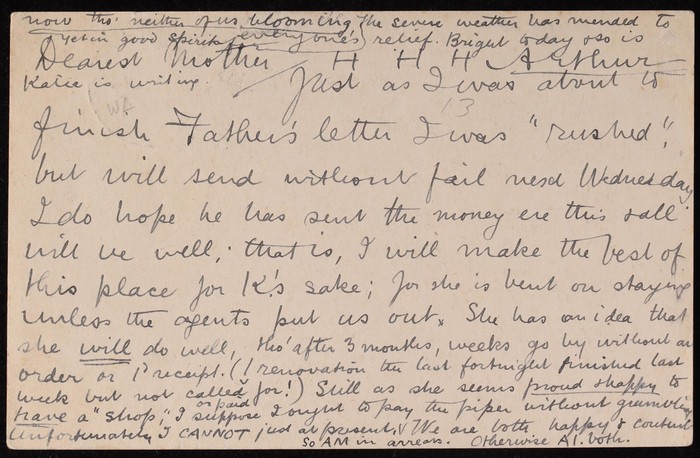 now tho' neither of us blooming The severe weather has mended to
yet in good spirits everyone's relief. Bright today so is
Dearest Mother H H H Arthur
Katie is writing. Just as I was about to
13
finish Father's letter I was "rushed",
but will send without fail next Wednesday
I do hope he has sent the money ere this & all
will be well; that is, I will make the best of
this place for K's sake; for she is bent on staying
unless the agents put us out. She has an idea that
she will do well, tho' after 3 months, weeks go by without an
order or 1d receipt. (1 renovation the last fortnight finished last
week but not called or paid for!) Still as she seems proud & happy to
have a "shop," I suppose I ought to pay the piper without grumbling
Unfortunately I CANNOT just at present. We are both happy & content
So AM in arrears. Otherwise A1. both.